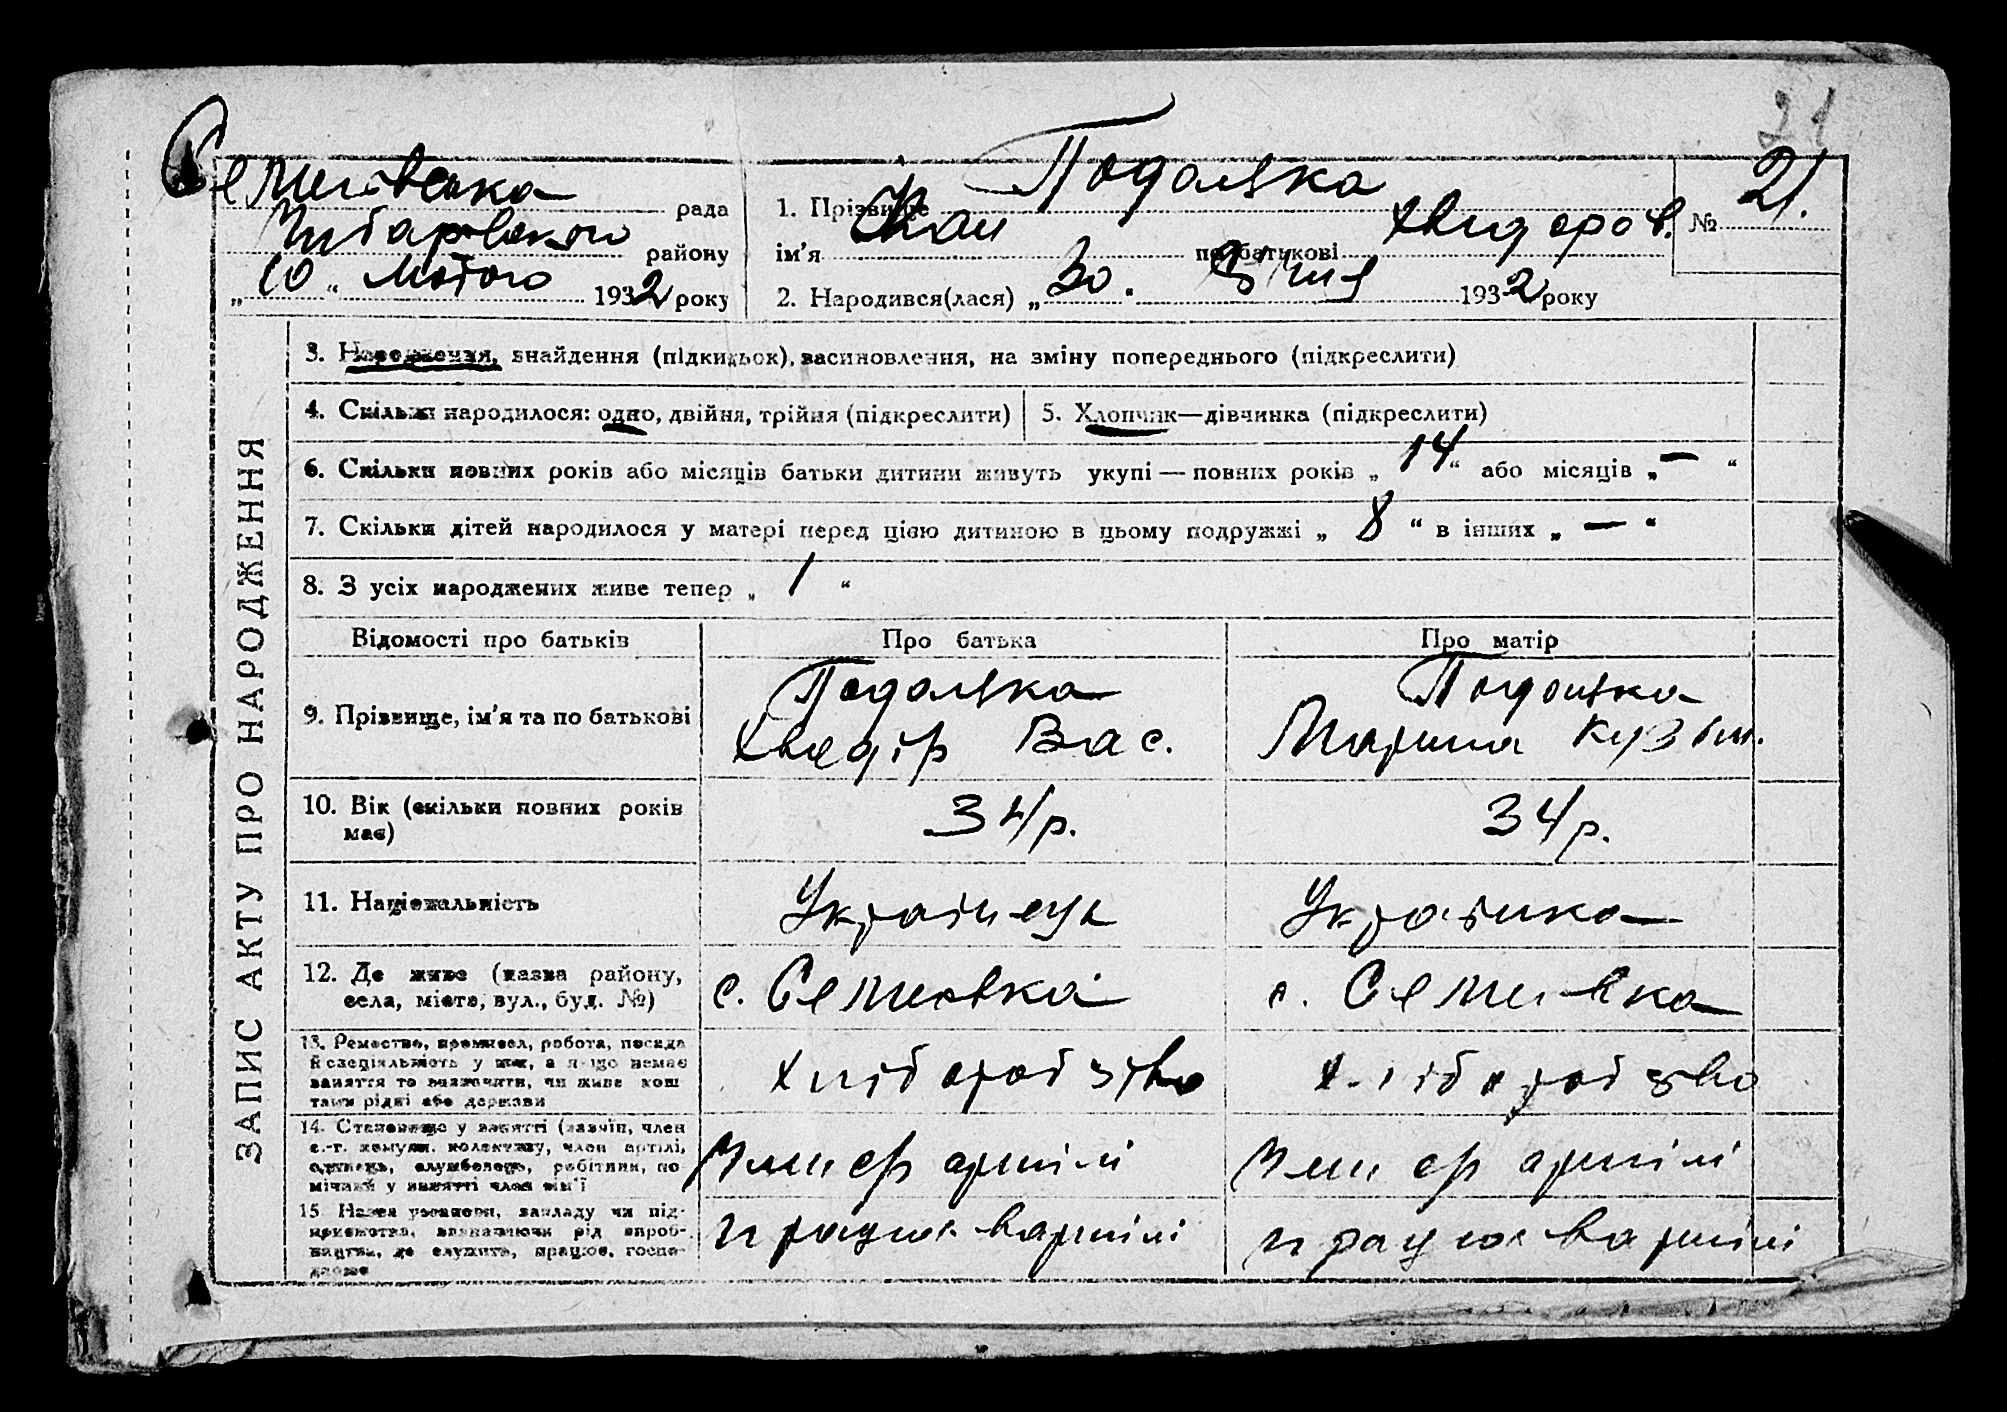 21
Семенівська рада
Чубарівського району
„10“ лютого 1932 року
1. Прізвище Подоляка
ім’я Іван по батькові Хведоров.
№ 21.
2. Народився(лася) „30“ Січня 1932 року
ЗАПИС АКТУ ПРО НАРОДЖЕННЯ
3. Народження, знайдення (підкидьок), засиновлення, на зміну попереднього (підкреслити)
4. Скільки народилося: одно, двійня, трійня (підкреслити)
5. Хлопчик—дівчинка (підкреслити)
6. Скільки повних років або місяців батьки дитини живуть укупі — повних років „14“ або місяців „—“
7. Скільки дітей народилося у матері перед цією дитиною в цьому подружжі „8“ в інших „—“
8. З усіх народжених живе тепер „1“
Відомості про батьків Про батька Про матір
9. Прізвище, ім’я та по батькові
Подоляка
Хведір Вас.
Подоляка
Марина Кузьм.
10. Вік (скільки повних років
має)
34 р.
34 р.
11. Національність
Українець
Українка
12. Де живе (назва району,
села, міста, вул., буд. №)
с. Семенівка
с. Семенівка
13. Ремество, промисел, робота, посада
й спеціяльність у них, а якщо немає
заняття то зазначити, чи живе кош
тами рідні або держави
Хліборобство
Хліборобство
14. Становище у занятті (хазяїн, член
с.-г. комуни, колективу, член артілі,
одинець, службовець, робітник, по
мічний у занятті член сім’ї
Член с/г артілі
Член с/г артілі
15. Назва установи, закладу чи під-
приємства, зазначаючи рід вироб-
ництва, де служить, працює, госпо-
дарює
працює в артілі
працює в артілі